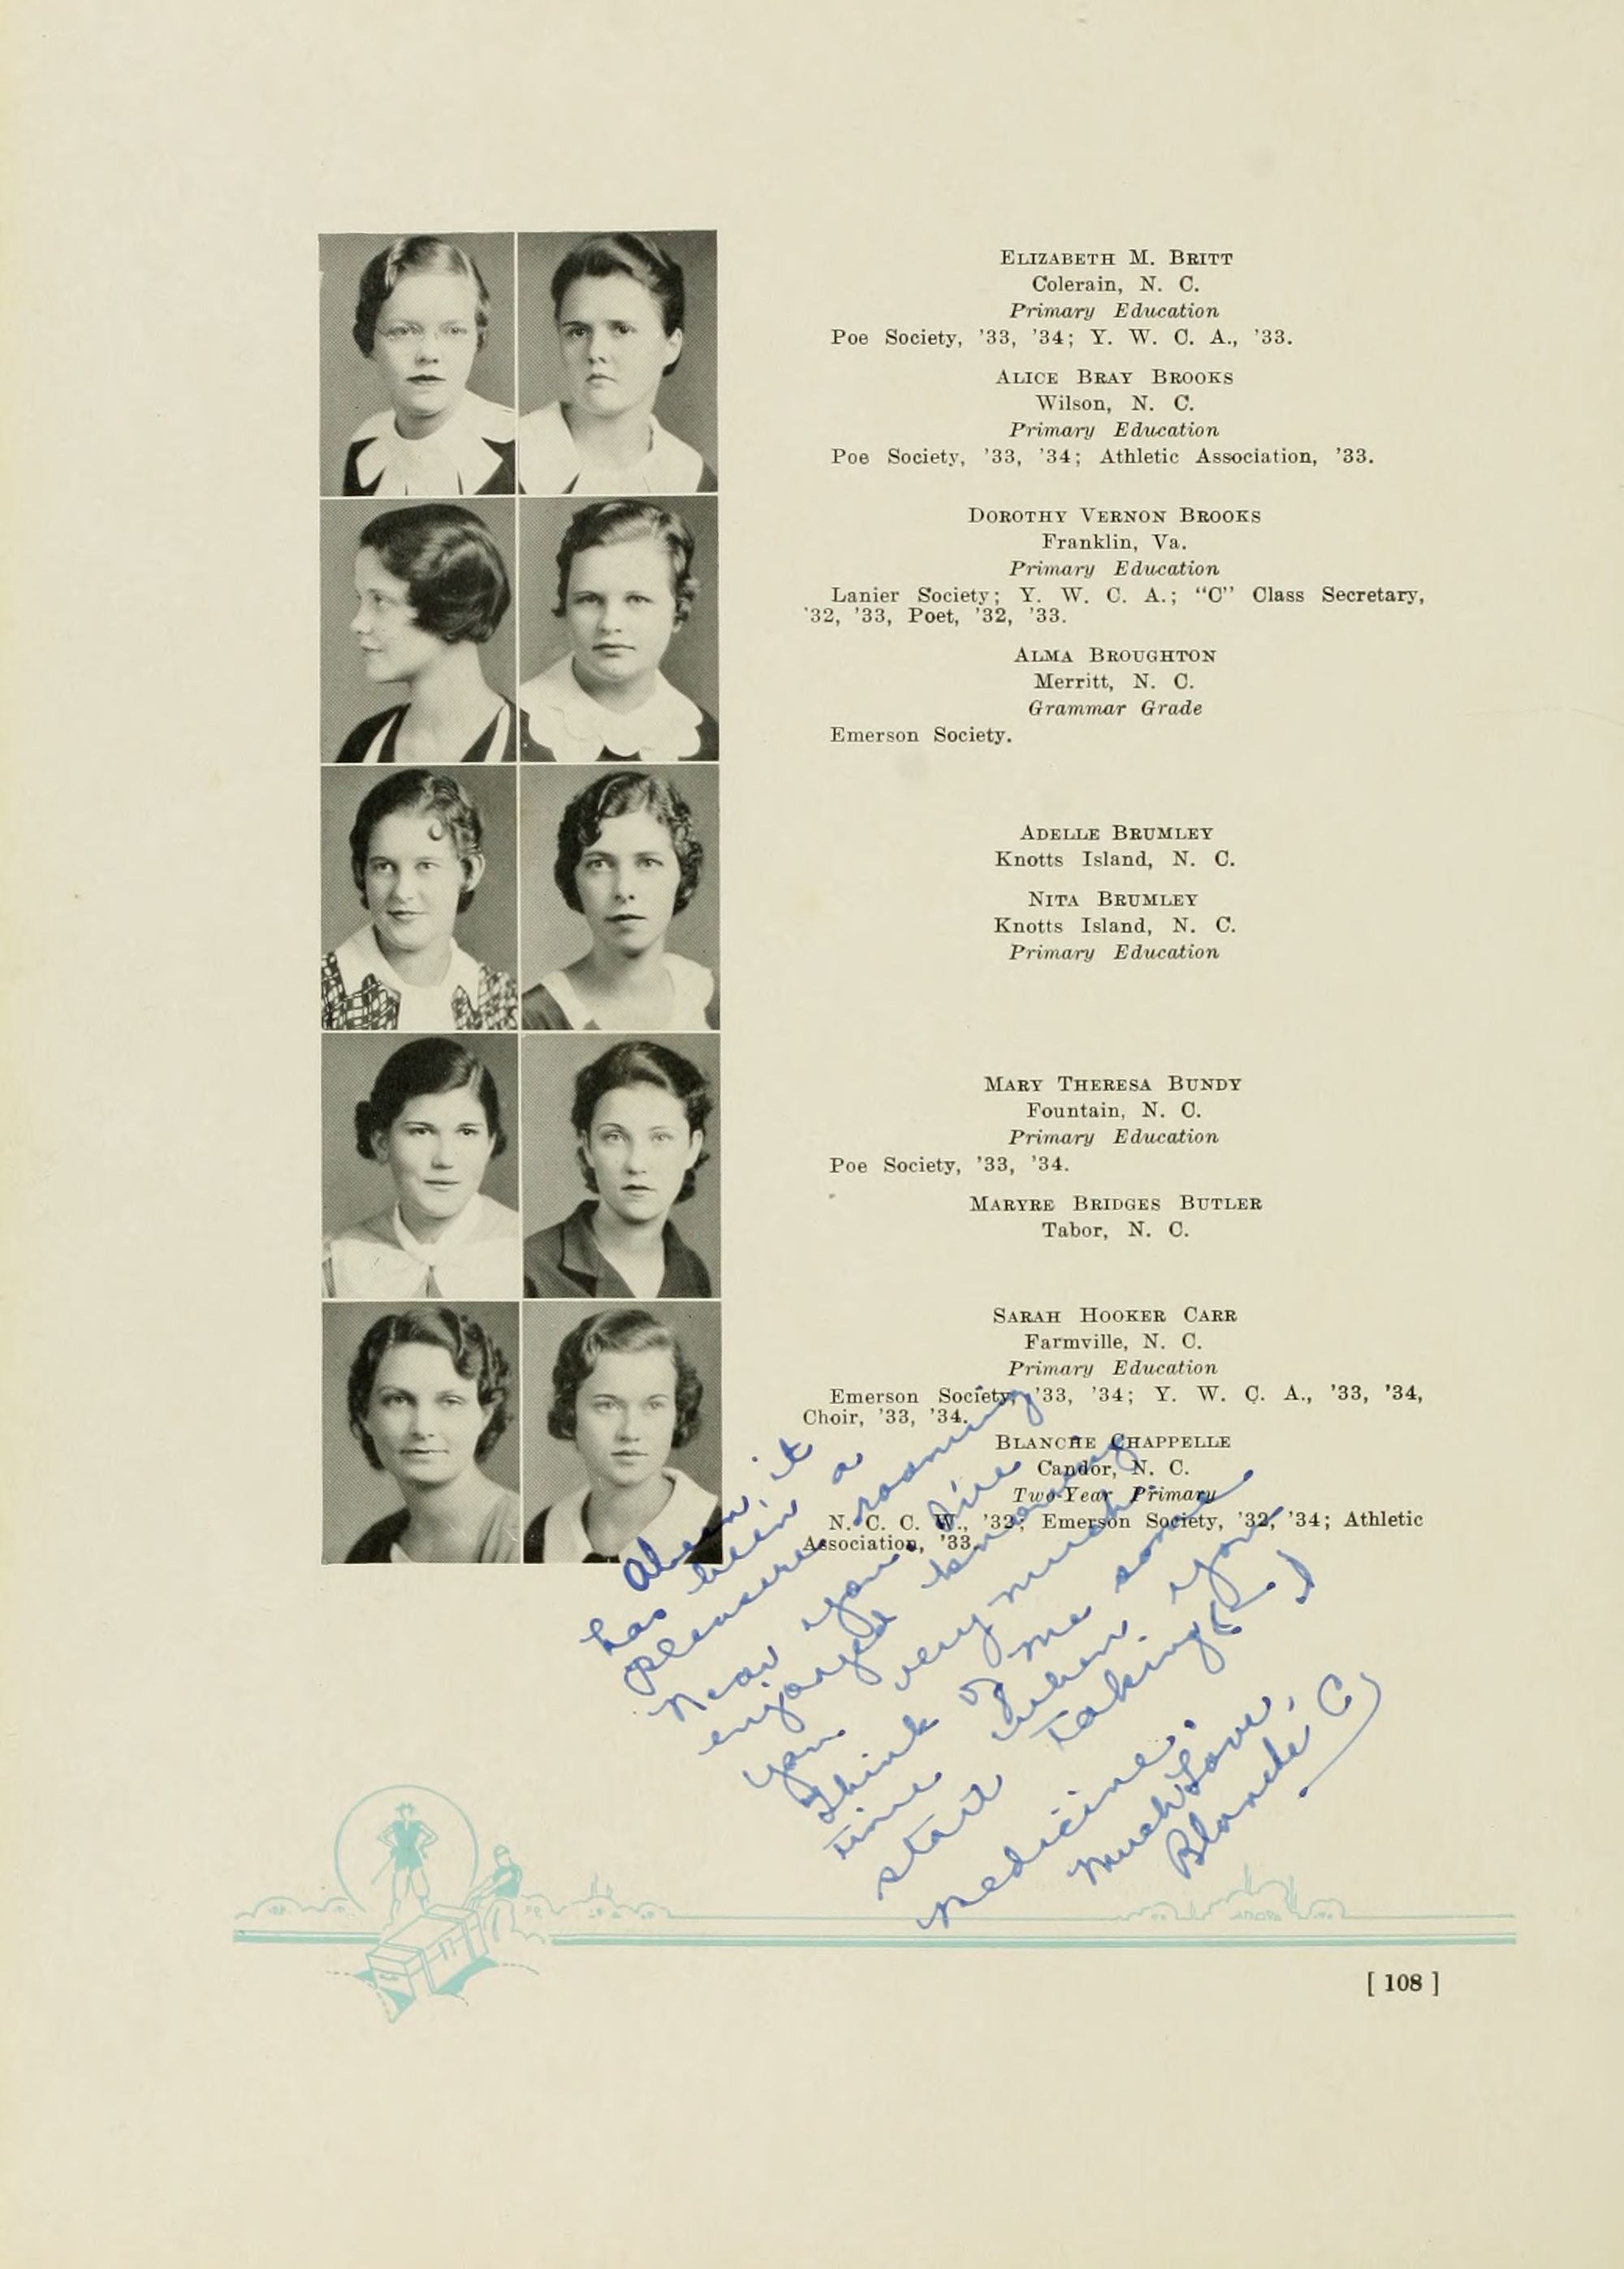 ELIZABETH M. BRITT
Colerain, N. C.
Primary Education
Poe Society, '33, '34; Y. W. C. A., '33.
ALICE BRAY BROOKS
Wilson, N. C.
Primary Education
Poe Society, '33, '34; Athletic Association, '33.
DOROTHY VERNON BROOKS
Franklin, Va.
Primary Education
Lanier Society; Y. W. C. A.; "C" Class Secretary,
'32, '33, Poet, '32, '33.
ALMA BROUGHTON
Merritt, N. C.
Grammar Grade
Emerson Society.
ADELLE BRUMLEY
Knotts Island, N. C.
NITA BRUMLEY
Knotts Island, N. C.
Primary Education
MARY THERESA BUNDY
Fountain, N. C.
Primary Education
Poe Society, '33, '34.
MARYRE BRIDGES BUTLER
Tabor, N. C.
SARAH HOOKER CARR
Farmville, N. C.
Primary Education
Emerson Society, '33, '34; Y. W. C. A., '33, '34,
Choir, '33, '34.
BLANCHE CHAPPELLE
Candor, N. C.
Two-Year Primary
N. C. C. W., '32; Emerson Society, '32, '34; Athletic
Association, '33.
it
has been a
pleasure rooming
near you. I've
enjoyed knowing
you very much.
Think of me some
time when you
start taking
medicine.
Much Love,
Blanche C
[ 108 ]